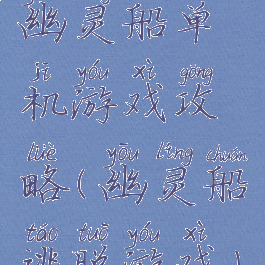 幽灵船单
jī yóu xì gōng
机游戏攻
lüè yōu líng chuán
略(幽灵船
táo tuō yóu xì
逃脱游戏)